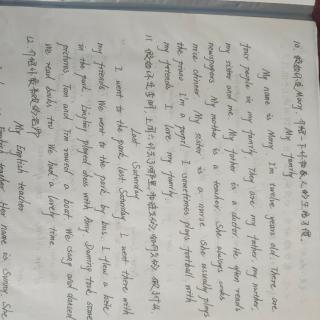 10. 假如你是Mary, 介绍一下你和家人的生活习惯。
My family
My name is Mary I'm twelve years old. There are
four people in my family. They are my father, my mother,
my sister and me. My father is a doctor. He often reads
newspapers. My mother is a teacher. She always cooks
nice dinner. My sister is a nurse. She usually plays
the piano. I'm a pupil. I sometimes plays football with
my friends. I love my family.
11.
Last Saturday
I went to the park last Saturday. I went there with
my friends. We went to the park by bus. I flew a kite
in the park. Lingling played chess with Amy. Daming took some
pictures. Tom and Tim rowed a boat. We sang and danced
We read books too. We had a lovely time
12. 介绍你
My English teacher
English teacher. Her name is Sunny. She